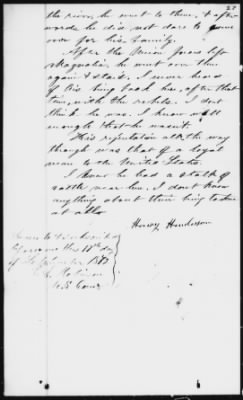 27
the river, he went to them, & after-
wards he did not dare to come
over for his family.
After the Union forces left
Magnolia he went over there
again & staid. I never heard
of his being back here, after that
time, with the rebels. I dont
think he was. I know well
enough that he wasnt.
His reputation all the way
though was that of a loyal
man to the United States.
I knew he had a stalk of
cattle near him. I dont know
anything about their being taken
at all.
Henry Henderson
Sworn to & subscribed
before me this 11th day
of September 187
U.S. Com